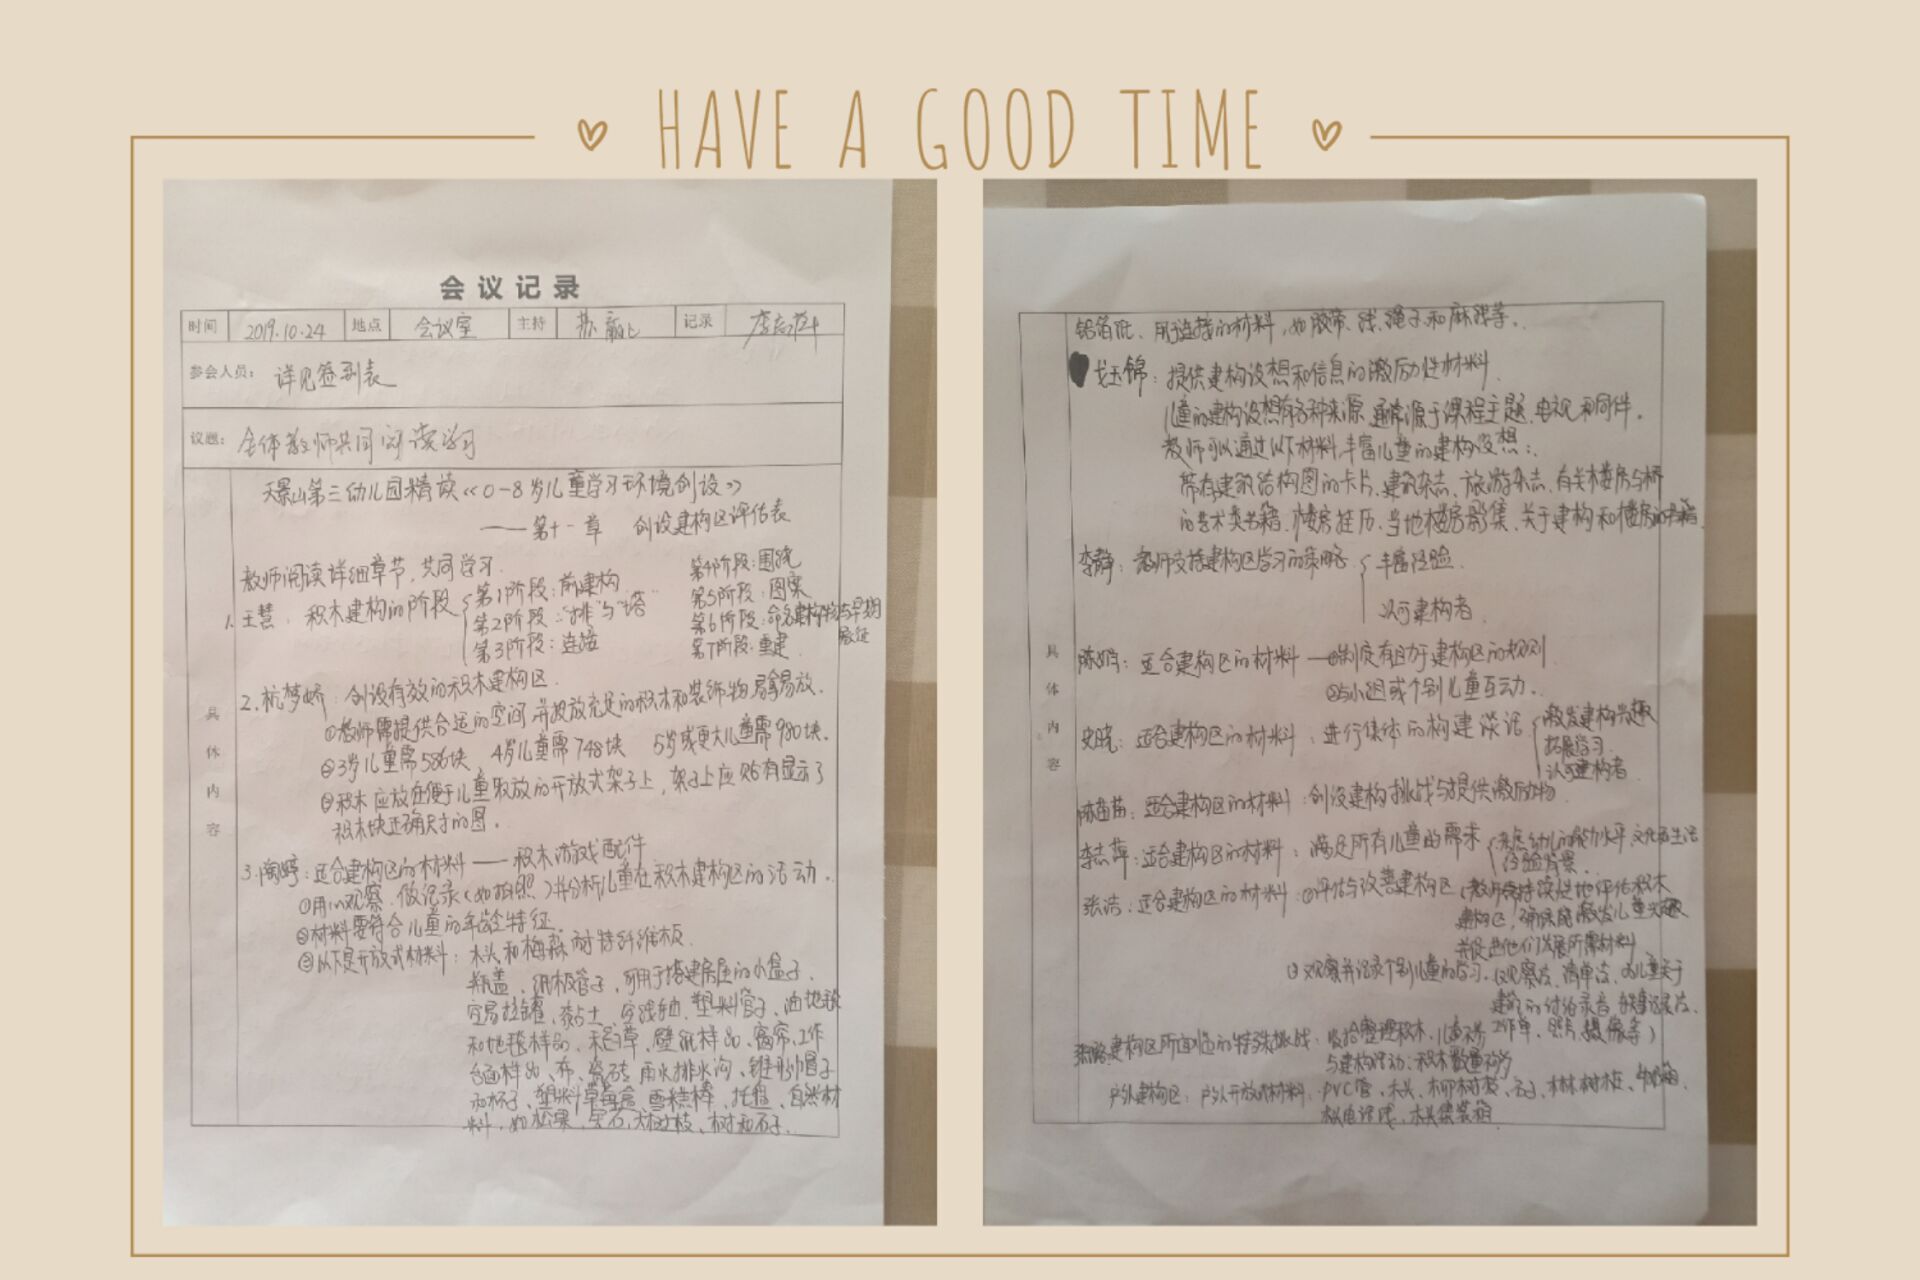 HAVE A GOOD TIME
会议记录
时间 2019.10.24 地点 会议室 主持 苏 记录 李志萍
参会人员: 详见签到表
议题: 全体教师共同阅读学习
天景山第三幼儿园精读《0-8岁儿童学习环境创设》
——第十一章 创设建构区评估表
教师阅读详细章节,共同学习.
1. 王慧. 积木建构的阶段
第1阶段:前建构
第2阶段:"排"与"塔"
第3阶段:连接
第4阶段:围绕
第5阶段:图案
第6阶段:命名建构物与早期
象征
第7阶段:重建.
具体内容
2.杭梦娇:创设有效的积木建构区.
①教师需提供合适的空间并投放充足的积木和装饰物易拿易放.
②3岁儿童需586块, 4岁儿童需748块 5岁或更大儿童需980块.
③积木应放在便于儿童取放的开放式架子上,架子上应贴有显示了
积木块正确尺寸的图.
3.陶婷:适合建构区的材料——积木游戏配件
①用心观察.做记录(如拍照)并分析儿童在积木建构区的活动.
②材料要符合儿童的年龄特征.
③以下是开放式材料:木头和梅森耐特纤维板.
瓶盖、纸板管子、可用于搭建房屋的小盒子、
空易拉罐、黏土、空线轴、塑料管子、油地毡
和地毯样品、稻草、壁纸样品、窗帘、工作
台面样品、布、瓷砖、雨水排水沟、锥形帽子
和杯子、塑料草莓盒、雪糕棒、托盘、自然材
料,如松果、宝石、大树枝、树和石子.
铝箔纸、用于连接的材料,如胶带、线、绳子和麻线等.
戈玉锦:提供建构设想和信息的激励性材料
儿童的建构设想有各种来源,通常源于课程主题、电视和同伴.
教师可以通过以下材料,丰富儿童的建构设想:
带有建筑结构图的卡片、建筑杂志、旅游杂志、有关木楼房与桥
的艺术类书籍、楼房挂历、当地楼房影集、关于建构和楼房的书籍.
李静:教师支持建构区学习的策略
丰富经验
认可建构者
具体内容
陈娟:适合建构区的材料—①制定有助于建构区的规则
②与小组或个别儿童互动.
史晓:适合建构区的材料:进行集体的构建谈话
激发建构兴趣
拓展学习
认可建构者
陈苗苗:适合建构区的材料:创设建构挑战与提供激励物
李志萍:适合建构区的材料:满足所有儿童的需求
考虑幼儿的能力水平、文化与生活
经验背景.
张洁:适合建构区的材料:①评估与改善建构区(教师会持续性地评估积木
建构区,确保能激发儿童兴趣
并促进他们发展所需材料
②观察并记录个别儿童的学习.(观察法、清单法、
建筑的讨论录音、
工作单、照片、摄像等)
建构区所面临的特殊挑战:收拾整理积木、儿童不
与建构活动:积木数量不够
户外建构区:户外开放式材料:PVC管、木头、柳树枝、石子、林林树桩、
木头集装箱